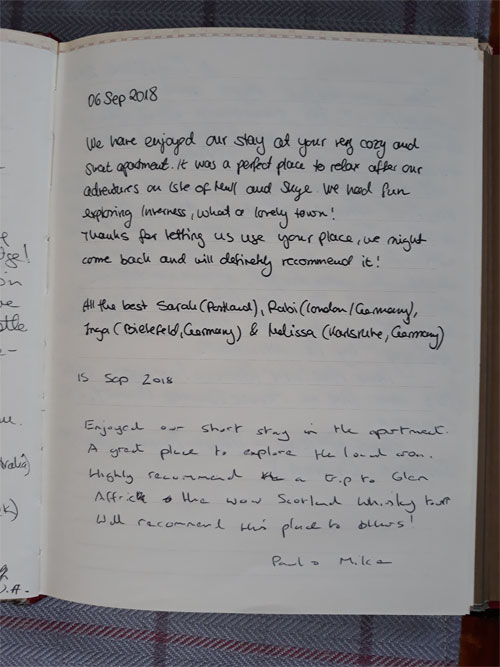 06 Sep 2018
We have enjoyed our stay at your very cozy and
sweet apartment. It was a perfect place to relax after our
adventures on Isle of Mull and Skye. We had fun
exploring Inverness, what a lovely town!
Thanks for letting us use your place, we might
come back and will definitely recommend it!
All the best Sarah (Portland), Rabi (London/Germany),
Inga (Bielefeld, Germany) & Melissa (Karlsruhe, Germany)
15 Sep 2018
Enjoyed our short stay in the apartment.
A great place to explore the local area.
Highly recommend a trip to Glen
Affric & the wow Scotland Whisky tour
Will recommend this place to others!
Paul & Mike